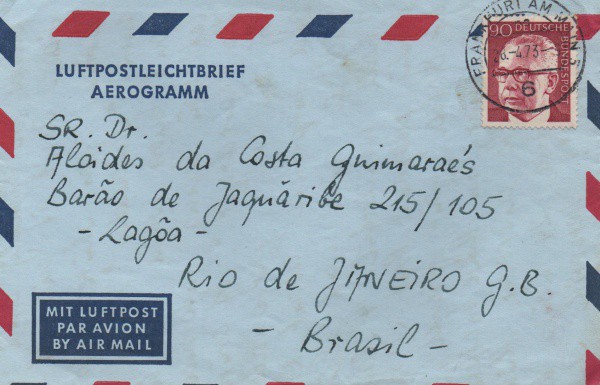 FRANKFURT AM MAIN 5
-4.73
6
90 DEUTSCHE BUNDESPOST
LUFTPOSTLEICHTBRIEF
AEROGRAMM
SR. Dr.
Alcides da Costa Guimaraẽs
Barão de Jaquãribe 215/105
- Lagõa -
RIO de JANEIRO G.B.
- Brasil -
MIT LUFTPOST
PAR AVION
BY AIR MAIL